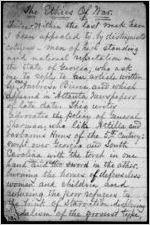 The Ethics Of War.
Within the last week have
been appealed to by distinguished
citizens - men of high standing
and national reputation in
the state of Georgia, who ask
me to reply to an article written
by Ambrose Bierce and which
appeared in Atlanta newspapers
of late date. This writer
advocates the policy of General
Sherman, who like Attila and
barbarous Huns of the 5th century
swept over Georgia and South
Carolina with the torch in one
hand and the sword in the other,
burning the homes of defenseless
women and children, and
reducing the poor refugees to
the point of starvation
vandalism of the grossest type